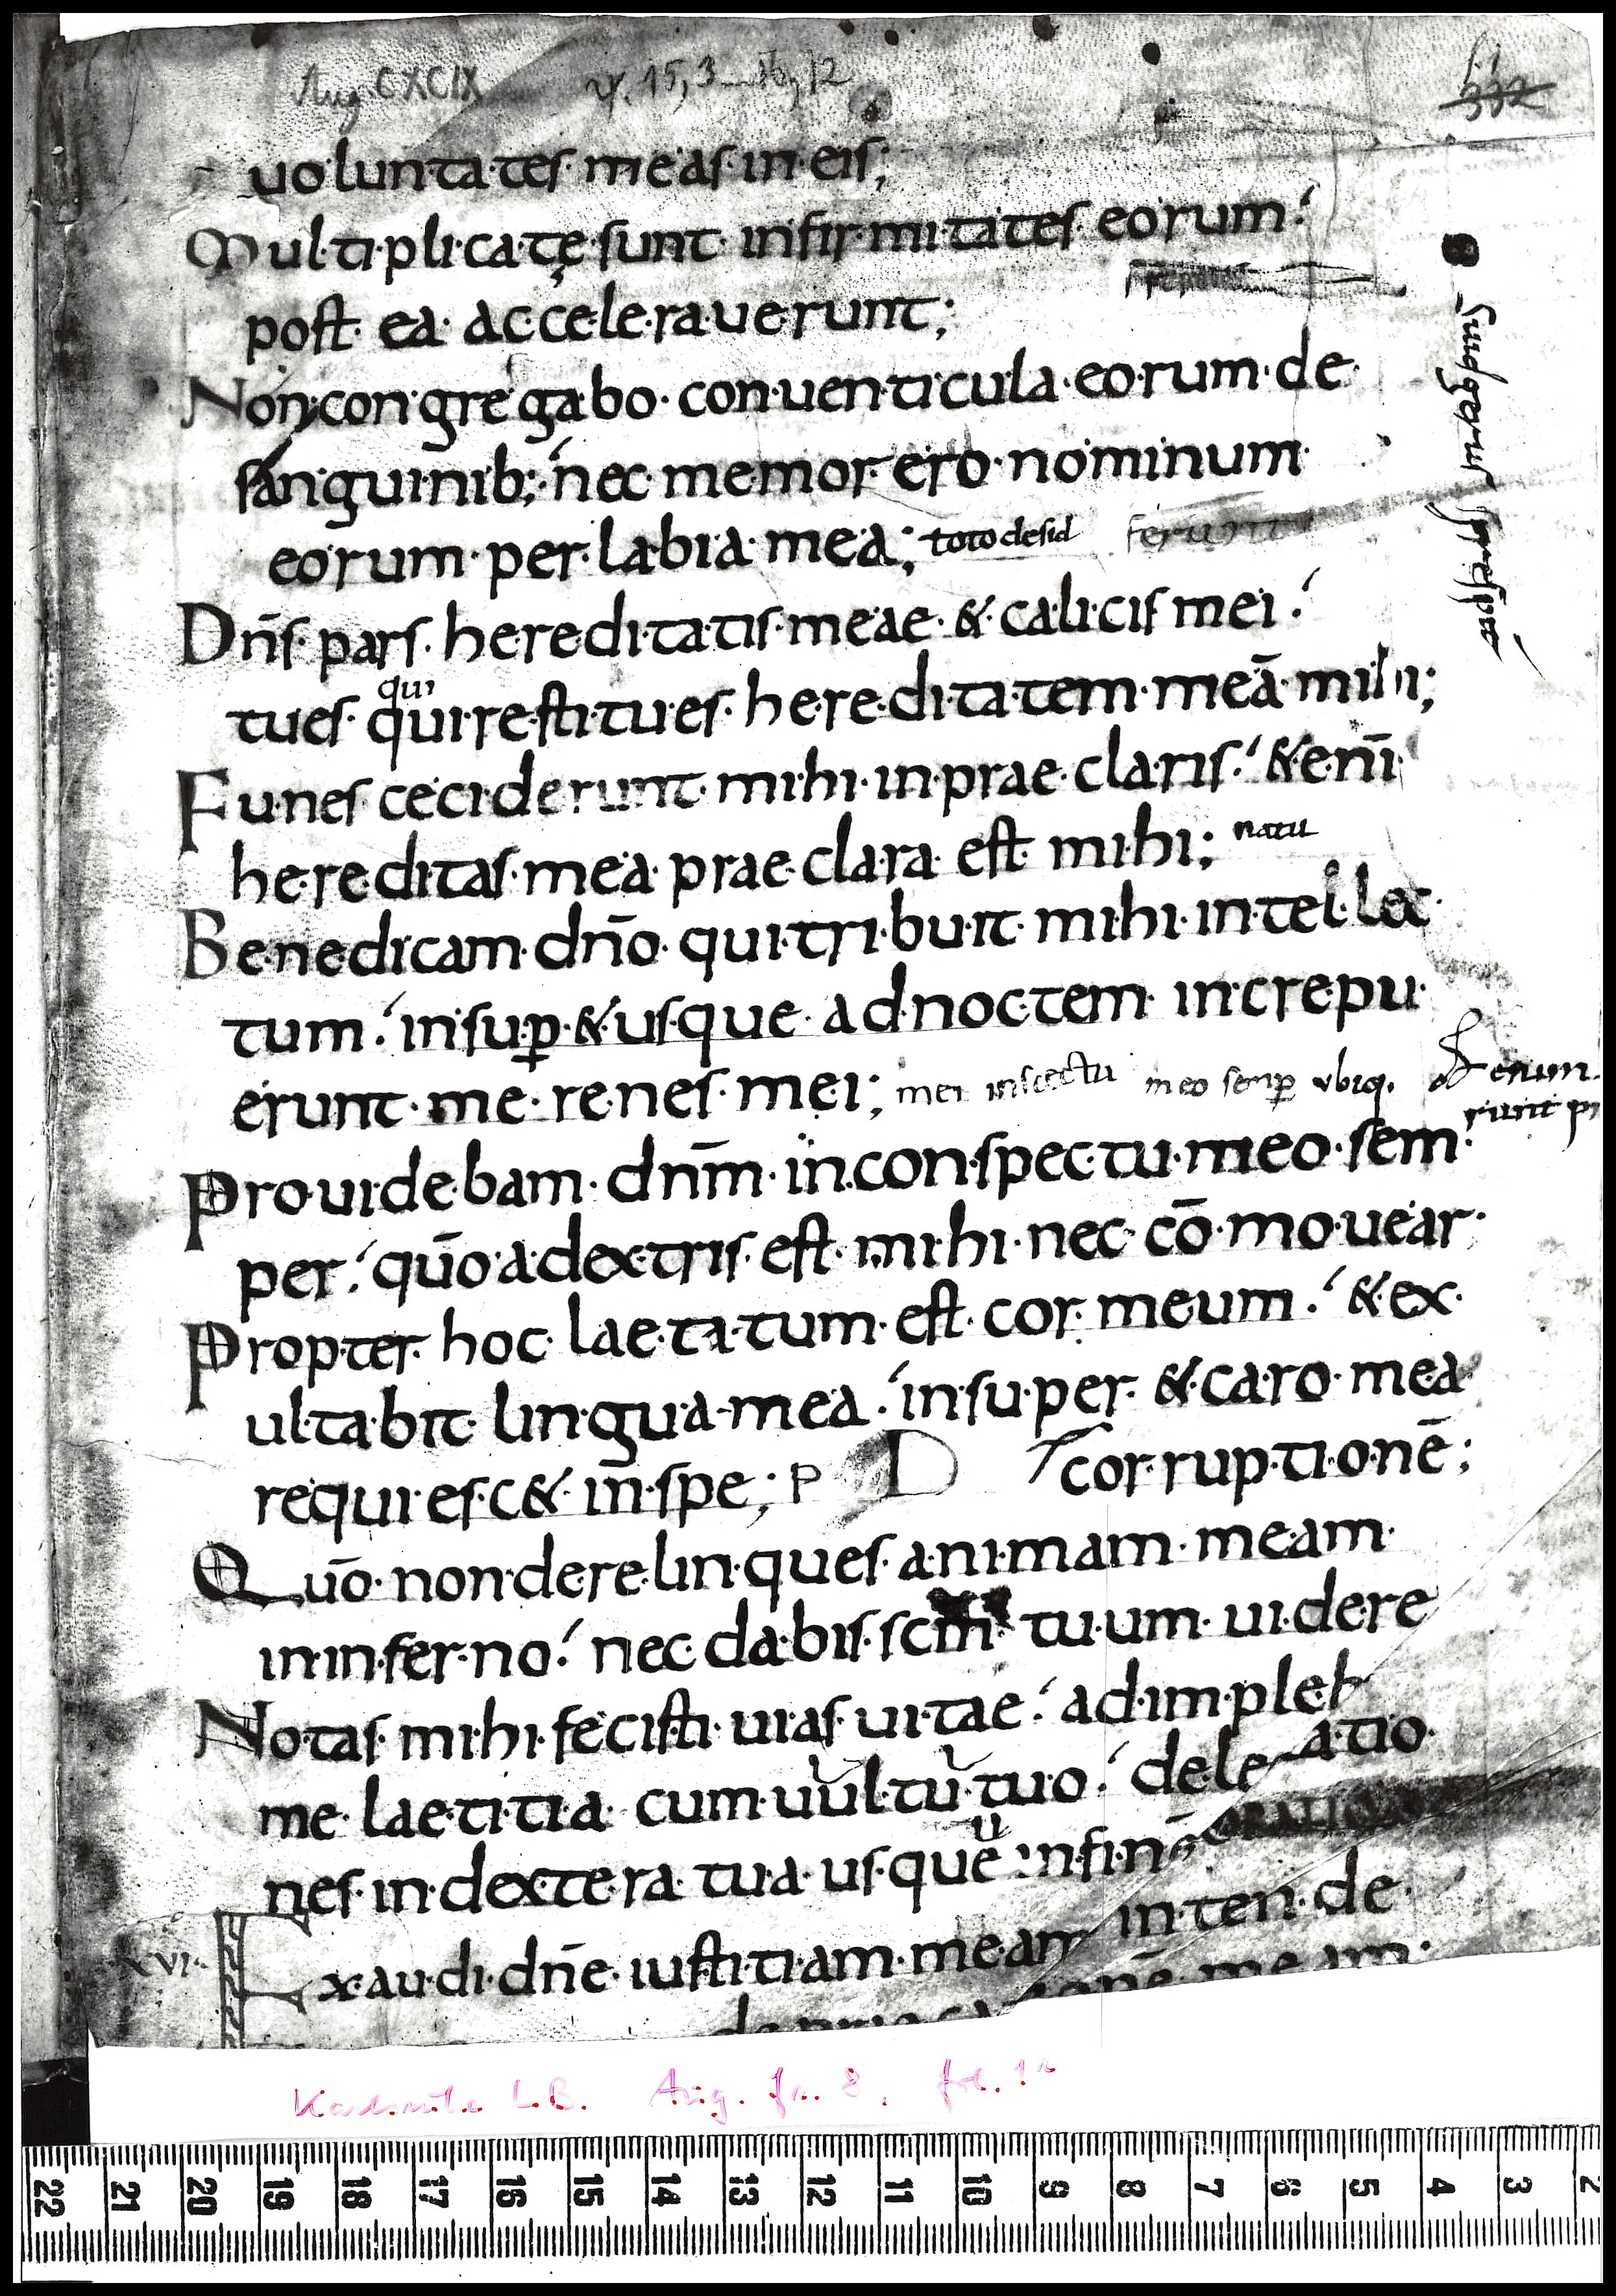 Aug. CXCIX ψ. 15,3–16,12
uo·lun·ta·tes· meas· in· eis;
Mul·ti·pli·ca·tę·sunt· infir·mi·ta·tes· eorum:
post· ea· ac·ce·le·ra·ue·runt;
Non·con·gre·ga·bo· con·uen·ti·cula·eo·rum·de·
san·gui·nib;· nec· me·mor· ero· nominum·
eorum· per· la·bi·a· mea; toto desid
Dn̄s· pars· he·re·di·ta·tis· meae· & ca·li·cis mei:
qui
tu es· qui·re·sti·tu·es· he·re·di·ta·tem· meā· mihi;
Fu·nes· ceci·de·runt· mi·hi· in·prae·cla·ris: & enī
he·re·di·tas· mea· prae·cla·ra· est· mi·hi; natu
Be·ne·di·cam· dn̄o· qui·tri·bu·it· mi·hi· in·tel·lec
tum: in·su·ꝑ· & us·que· ad·noc·tem· in·cre·pu
erunt· me· re·nes· mei; mei meo semꝑ vbiq.
enim
runt
Pro·ui·de·bam· dn̄m· in·con·spec·tu· meo· sem·
per: quō·a·dex·tris· est· mi·hi· nec· cō·mo·uear·
Prop·ter· hoc· lae·ta·tum· est· cor· meum: & ex·
ul·ta·bit· lin·gu·a·mea: in·su·per· & ca·ro· mea
requi·es·c& in·spe; P D cor·rup·ti·o·nē;
Quō· non·de·re·lin·ques· a·ni·mam· meam·
in·in·fer·no: nec· da·bis· scm̄ tu·um· ui·de·re
No·tas· mi·hi· fe·ci·sti· uias· ui·tae: ad·im·pleb
me· lae·ti·ti·a· cum·uul·tu·tuo: de·le atio·
nes· in·dex·te·ra· tu·a· us·que in·fi·nē ORATIO
XVI· Ex·au·di· dn̄e· iu·sti·ti·am· meam in·ten·de·
onē· meam·
Aug. fr. 8, fol. 1r
22 21 20 19 18 17 16 15 14 13 12 11 10 9 8 7 6 5 4 3 2